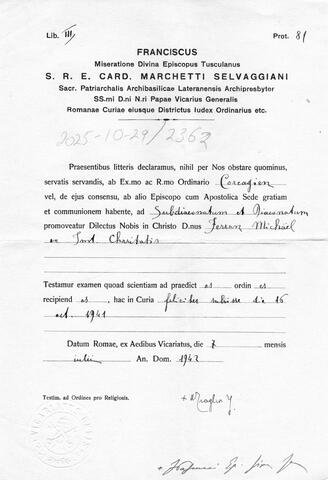 Lib. III Prot. 81
FRANCISCUS
Miseratione Divina Episcopus Tusculanus
S. R. E. CARD. MARCHETTI SELVAGGIANI
Sacr. Patriarchalis Archibasilicae Lateranensis Archipresbyter
SS.mi D.ni N.ri Papae Vicarius Generalis
Romanae Curiae eiusque Districtus Iudex Ordinarius etc.
2025-10-29/2362
Praesentibus litteris declaramus, nihil per Nos obstare quominus,
servatis servandis, ab Ex.mo ac R.mo Ordinario
vel, de ejus consensu, ab alio Episcopo cum Apostolica Sede gratiam
et communionem habente, ad Subdiaconatum et Diaconatum
promoveatur Dilectus Nobis in Christo D.nus Ferran Michael
ex Inst Charitatis
Testamur examen quoad scientiam ad praedict os ordin es
recipiend os , hac in Curia feliciter subiisse die 16
oct. 1941
Datum Romae, ex Aedibus Vicariatus, die 7 mensis
An. Dom. 1942
Testim. ad Ordines pro Religiosis.